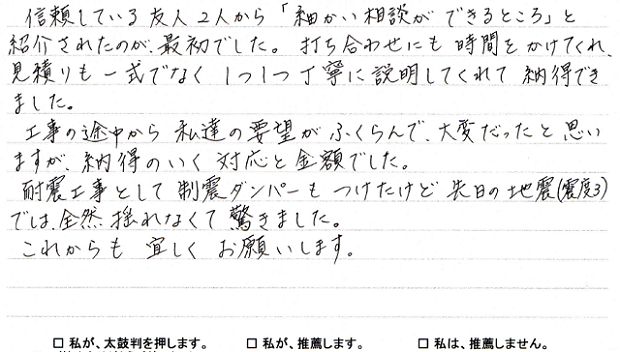 信頼している友人2人から「細かい相談ができるところ」と
紹介されたのが、最初でした。打ち合わせにも時間をかけてくれ、
見積りも一式でなく1つ1つ丁寧に説明してくれて納得でき
ました。
工事の途中から私達の要望がふくらんで、大変だったと思い
ますが、納得のいく対応と金額でした。
耐震工事として制震ダンパーもつけたけど先日の地震(震度3)
では、全然揺れなくて驚きました。
これからも宜しくお願いします。
□ 私が、太鼓判を押します。 □ 私が、推薦します。 □ 私は、推薦しません。